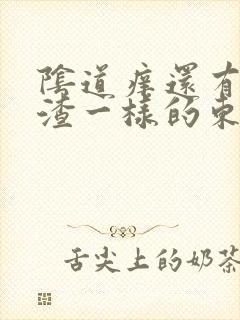 陰道痒還有
渣一樣的東
舌尖上的奶茶